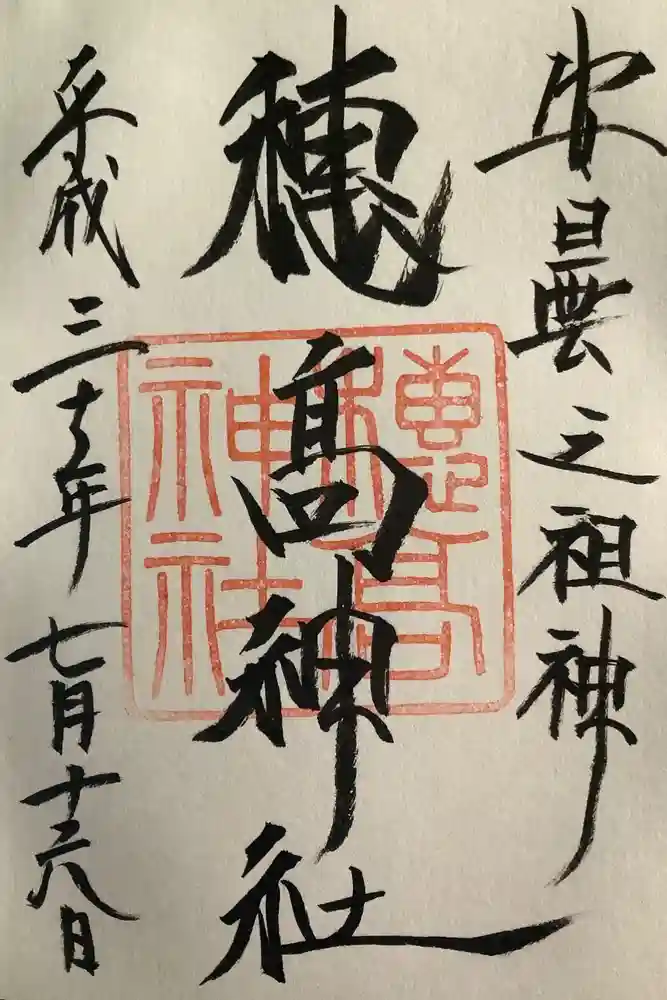 安曇之祖神
穂髙神社
穗高
神社
平成三十年七月十六日